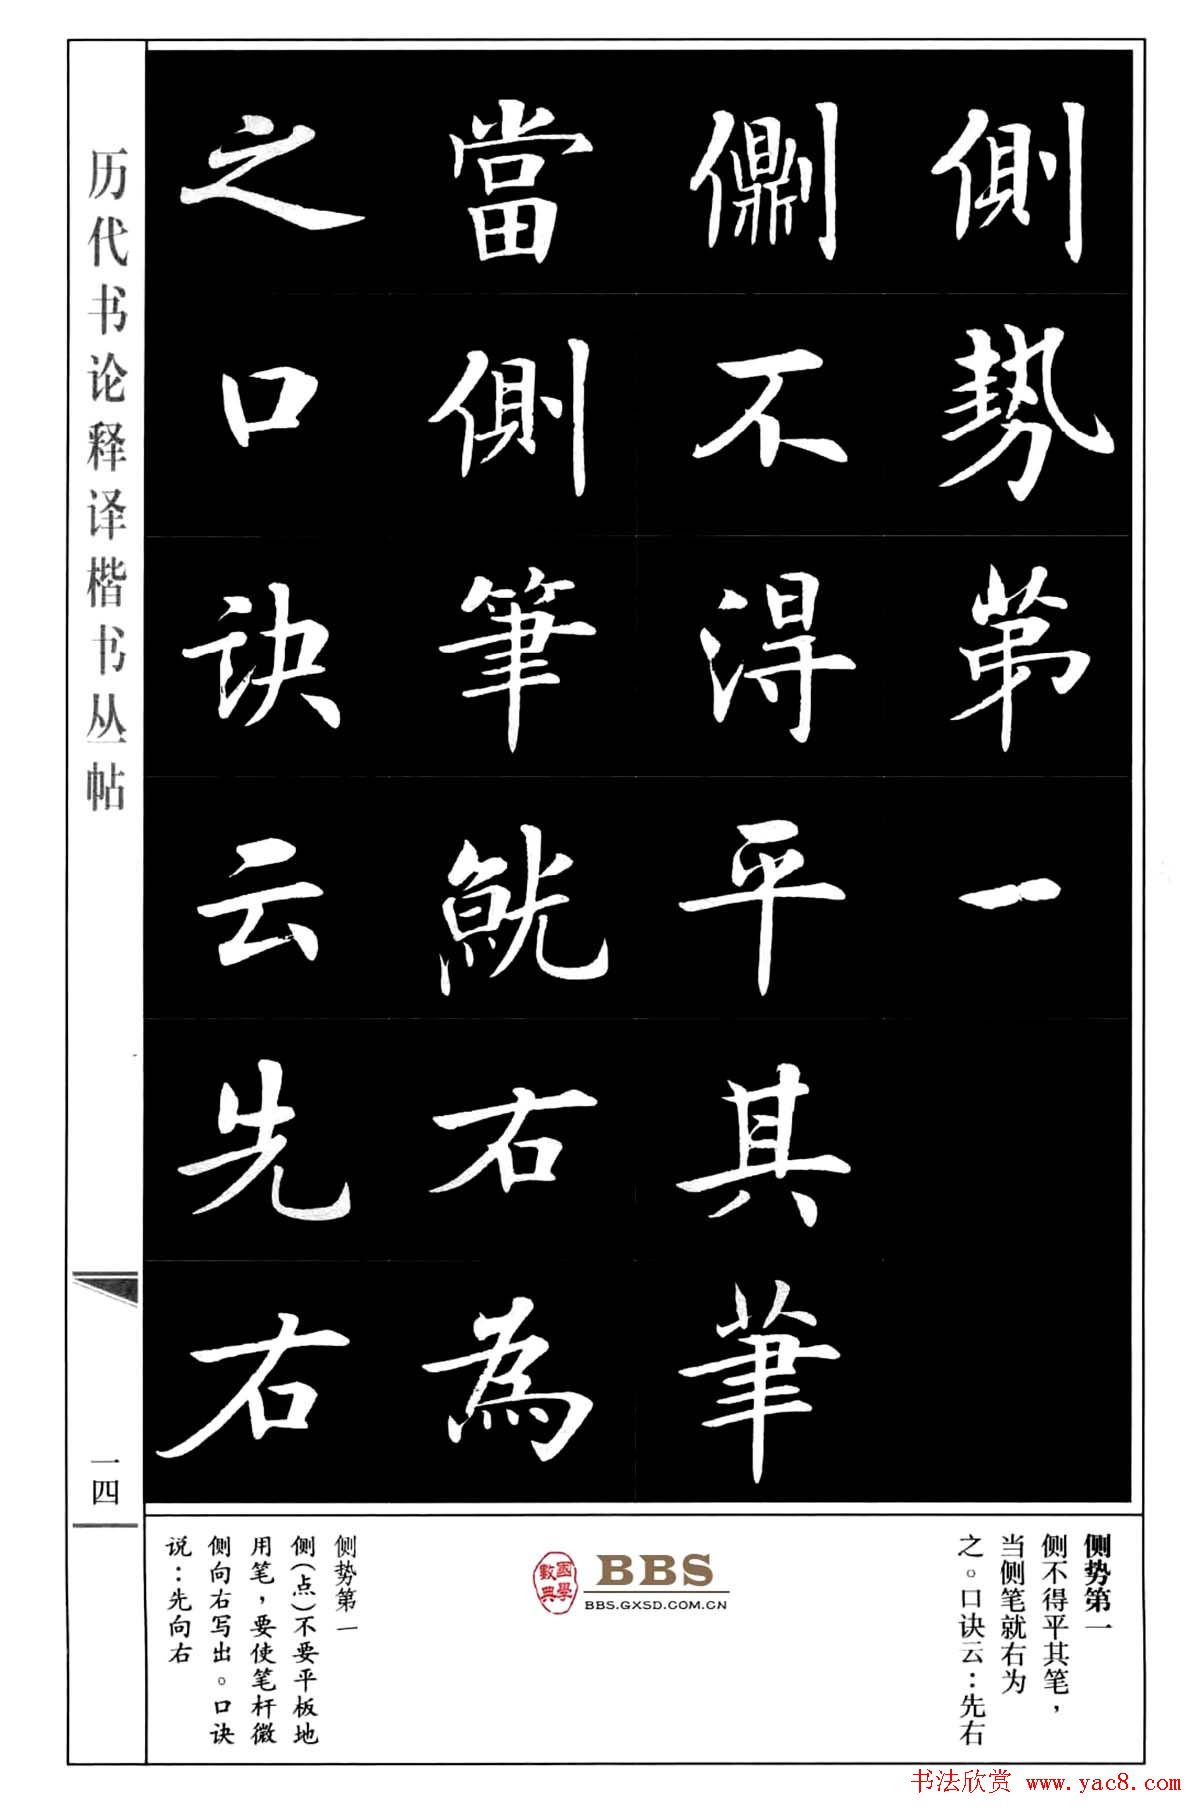 側勢第一
側不得平其筆
當側筆就右為
之口訣云先右
历代书论释译楷书丛帖
一四
侧势第一
侧不得平其笔，
当侧笔就右为
之。口诀云：先右
國學
數典
BBS
BBS.GXSD.COM.CN
侧势第一
侧（点）不要平板地
用笔，要使笔杆微
侧向右写出。口诀
说：先向右
书法欣赏 www.yac8.com